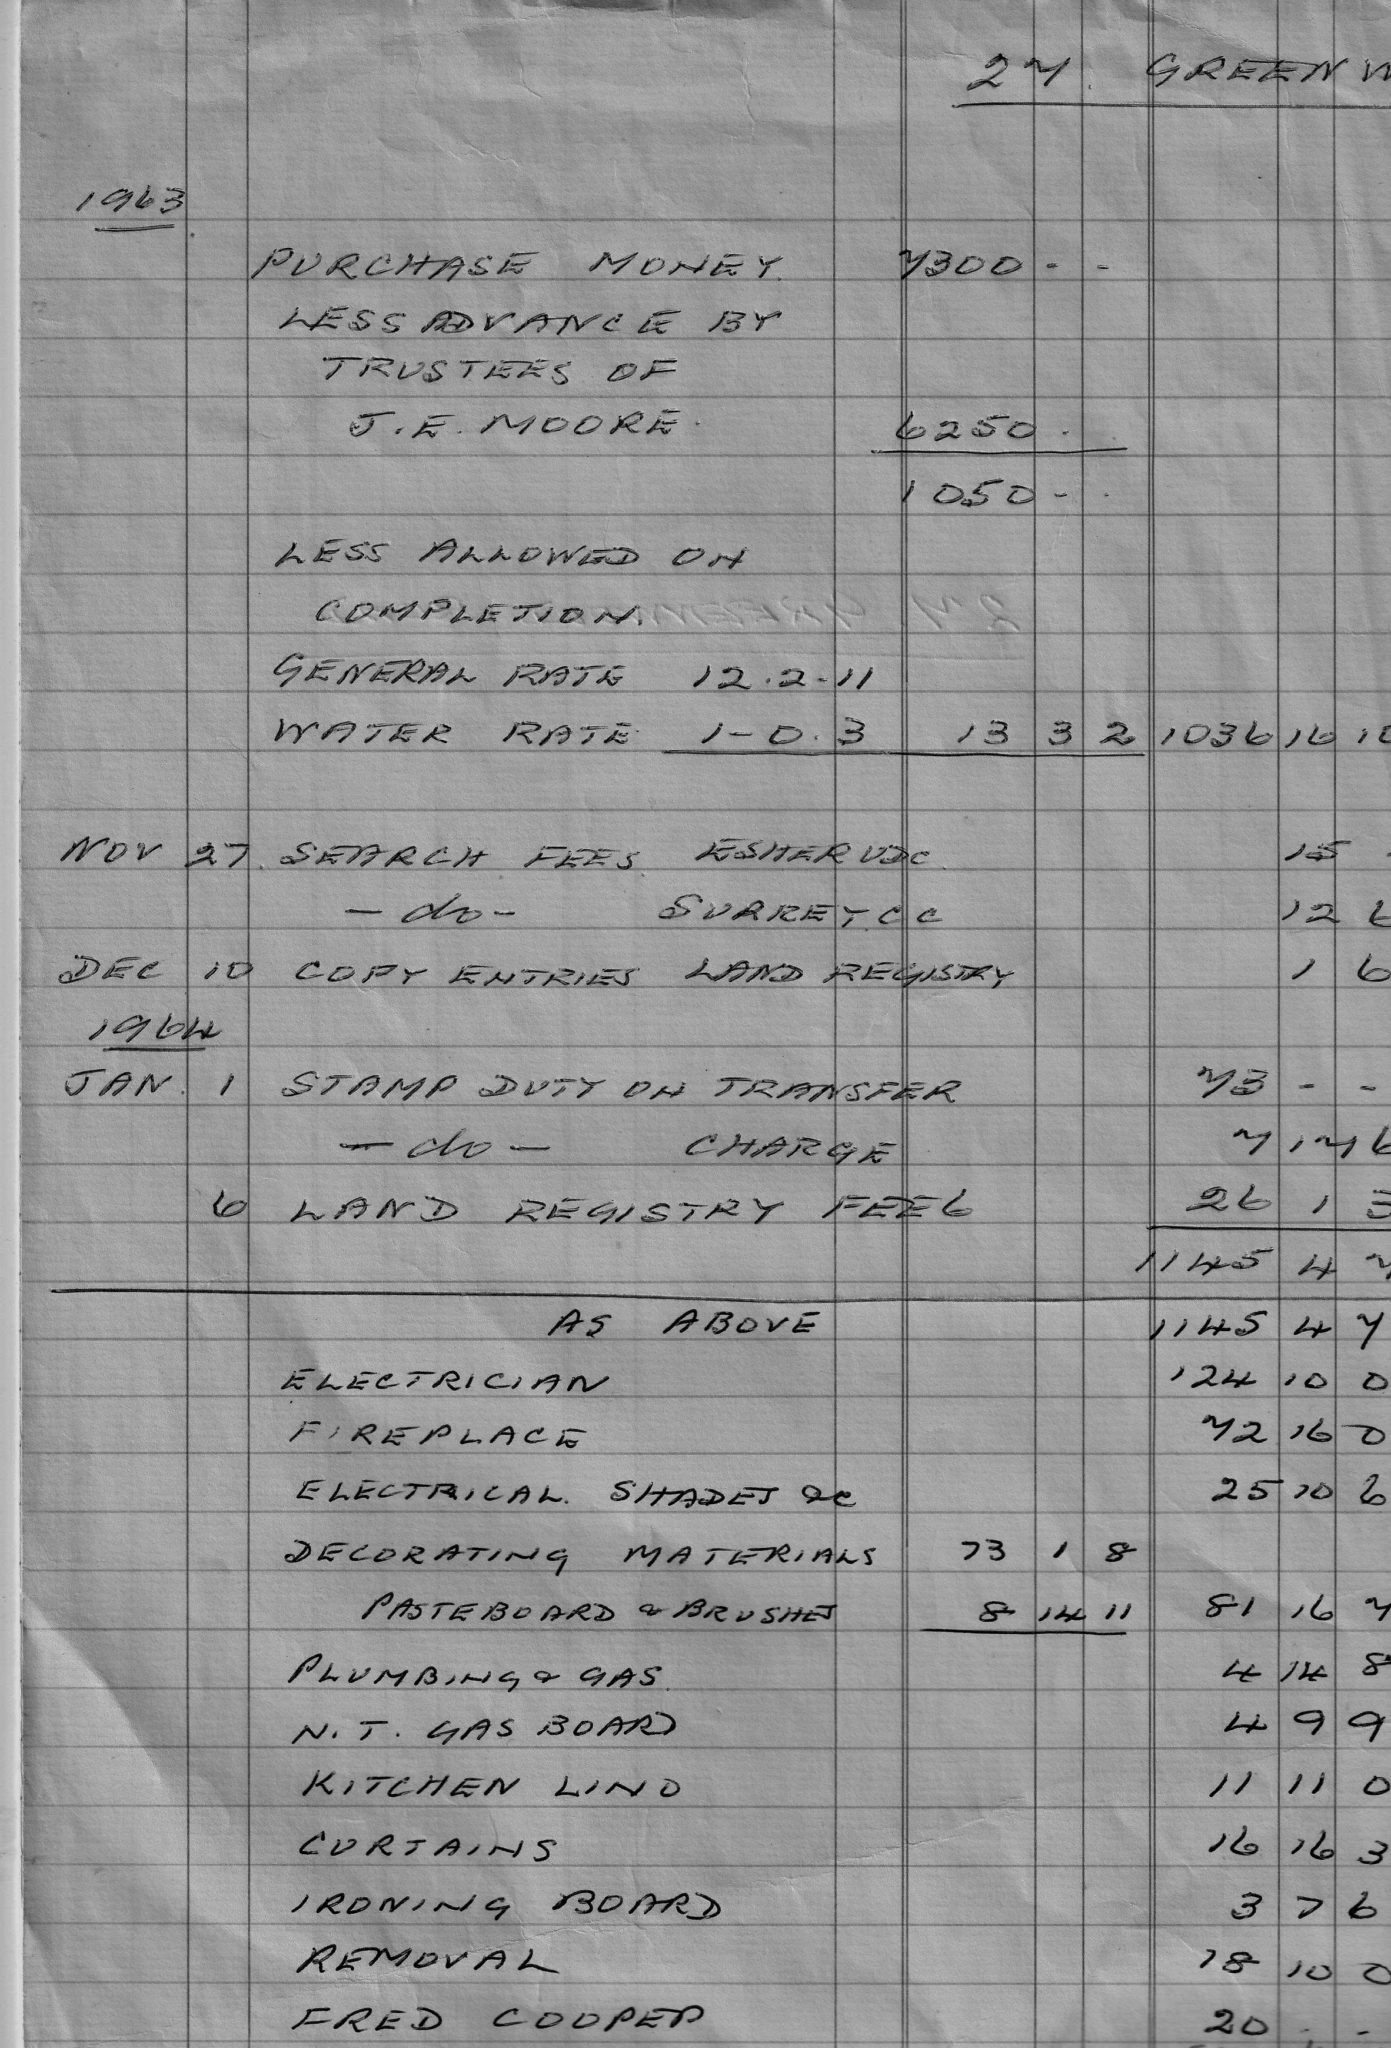 27. GREEN W
1963
PURCHASE MONEY. 7300 - -
LESS ADVANCE BY
TRUSTEES OF
J.E. MOORE. 6250 -
1050 - -
LESS ALLOWED ON
COMPLETION.
GENERAL RATE 12.2.11
WATER RATE 1-0.3 13 3 2 1036 16 10
NOV 27. SEARCH FEES ESHER UDC. 15 -
-do- SURREY. C C 12 6
DEC 10 COPY ENTRIES LAND REGISTRY 1 6
1964
JAN. 1 STAMP DUTY ON TRANSFER 73 - -
-do- CHARGE 7 17 6
6 LAND REGISTRY FEES 26 1 3
1145 4 7
AS ABOVE 1145 4 7
ELECTRICIAN 124 10 0
FIREPLACE 72 16 0
ELECTRICAL. SHADES &c 25 10 6
DECORATING MATERIALS 73 1 8
PASTEBOARD & BRUSHES 8 14 11 81 16 7
PLUMBING & GAS. 4 14 8
N.T. GAS BOARD 4 9 9
KITCHEN LINO 11 11 0
CURTAINS 16 16 3
IRONING BOARD 3 7 6
REMOVAL 18 10 0
FRED COOPER 20 - -